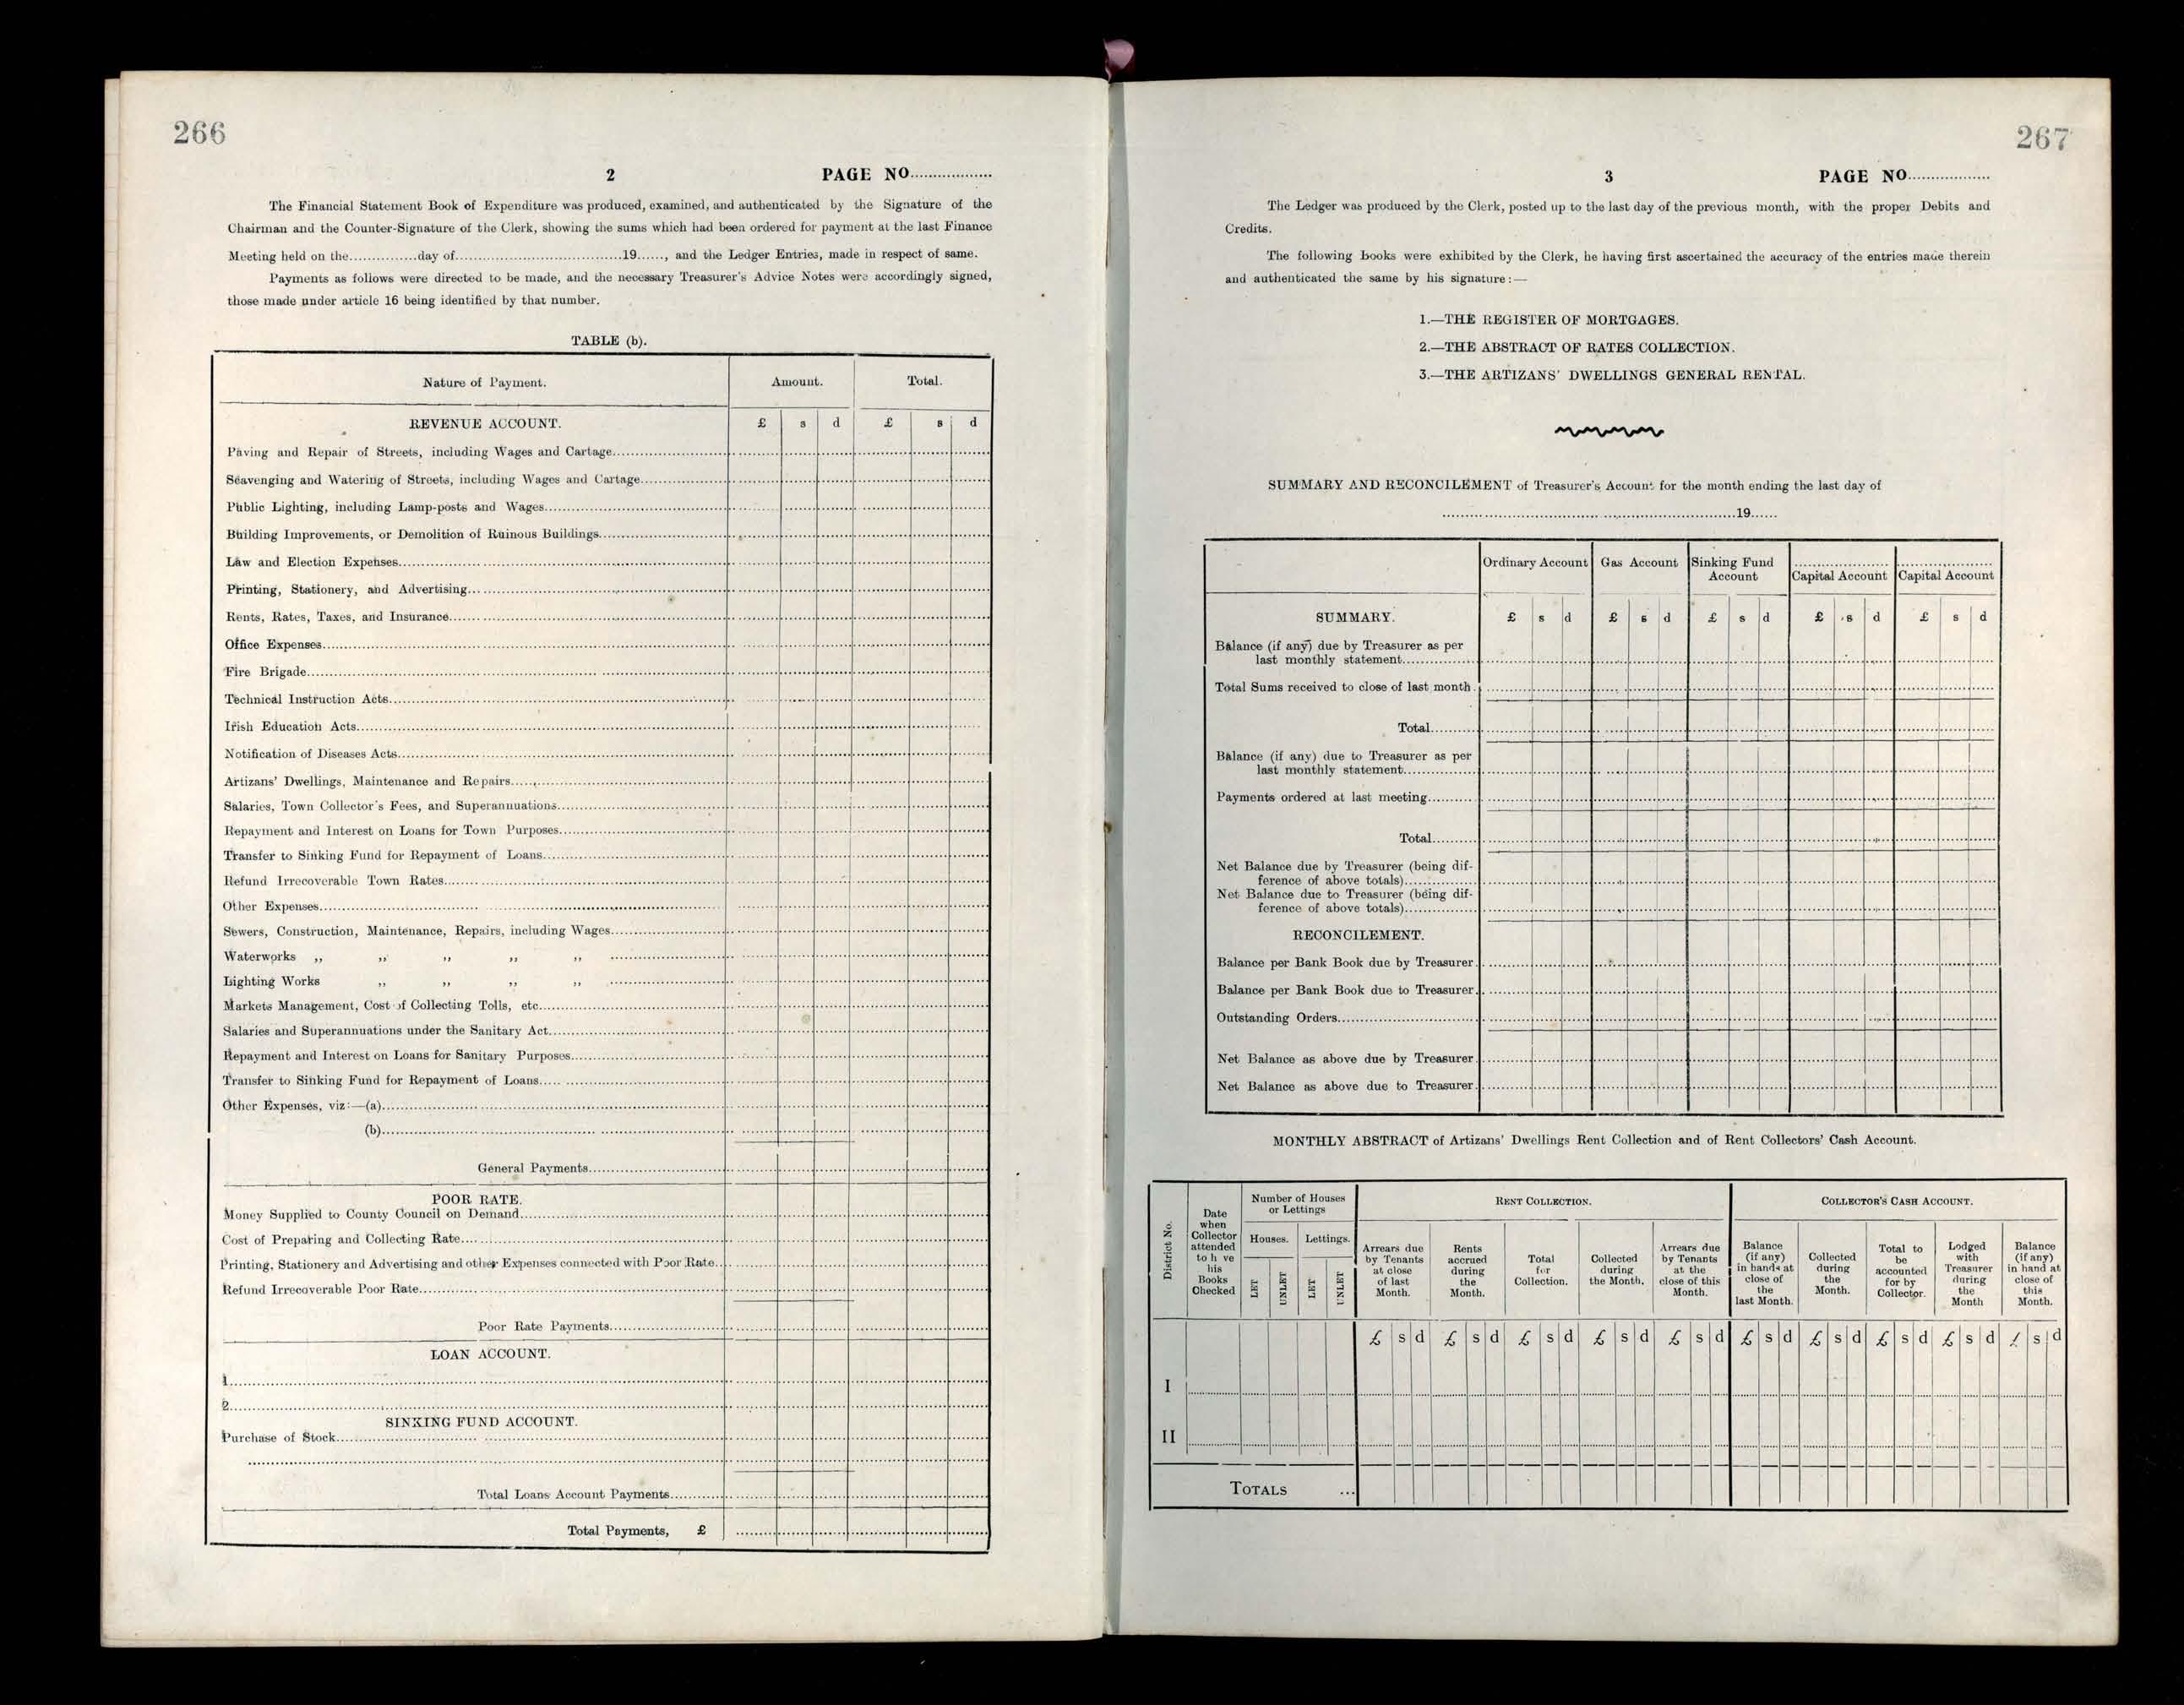 266
2 PAGE NO..................
The Financial Statement Book of Expenditure was produced, examined, and authenticated by the Signature of the
Chairman and the Counter-Signature of the Clerk, showing the sums which had been ordered for payment at the last Finance
Meeting held on the...............day of.....................................19......, and the Ledger Entries, made in respect of same.
Payments as follows were directed to be made, and the necessary Treasurer's Advice Notes were accordingly signed,
those made under article 16 being identified by that number.
TABLE (b).
Nature of Payment. Amount. Total.
REVENUE ACCOUNT. £ s d £ s d
Paving and Repair of Streets, including Wages and Cartage
Scavenging and Watering of Streets, including Wages and Cartage
Public Lighting, including Lamp-posts and Wages
Building Improvements, or Demolition of Ruinous Buildings
Law and Election Expenses
Printing, Stationery, and Advertising
Rents, Rates, Taxes, and Insurance
Office Expenses
Fire Brigade
Technical Instruction Acts
Irish Education Acts
Notification of Diseases Acts
Artizans' Dwellings, Maintenance and Repairs
Salaries, Town Collector's Fees, and Superannuations
Repayment and Interest on Loans for Town Purposes
Transfer to Sinking Fund for Repayment of Loans
Refund Irrecoverable Town Rates
Other Expenses
Sewers, Construction, Maintenance, Repairs, including Wages
Waterworks ,, ,, ,, ,, ,,
Lighting Works ,, ,, ,, ,,
Markets Management, Cost of Collecting Tolls, etc
Salaries and Superannuations under the Sanitary Act
Repayment and Interest on Loans for Sanitary Purposes
Transfer to Sinking Fund for Repayment of Loans
Other Expenses, viz:—(a)
(b)
General Payments
POOR RATE.
Money Supplied to County Council on Demand
Cost of Preparing and Collecting Rate
Printing, Stationery and Advertising and other Expenses connected with Poor Rate
Refund Irrecoverable Poor Rate
Poor Rate Payments
LOAN ACCOUNT.
1
2
SINKING FUND ACCOUNT.
Purchase of Stock
Total Loans Account Payments
Total Payments, £
267
3 PAGE NO..................
The Ledger was produced by the Clerk, posted up to the last day of the previous month, with the proper Debits and
Credits.
The following Books were exhibited by the Clerk, he having first ascertained the accuracy of the entries made therein
and authenticated the same by his signature:—
1.—THE REGISTER OF MORTGAGES.
2.—THE ABSTRACT OF RATES COLLECTION.
3.—THE ARTIZANS' DWELLINGS GENERAL RENTAL.
SUMMARY AND RECONCILEMENT of Treasurer's Account for the month ending the last day of
..................................................................19......
Ordinary Account Gas Account Sinking Fund Account Capital Account Capital Account
SUMMARY. £ s d £ s d £ s d £ s d £ s d
Balance (if any) due by Treasurer as per
last monthly statement
Total Sums received to close of last month
Total
Balance (if any) due to Treasurer as per
last monthly statement
Payments ordered at last meeting
Total
Net Balance due by Treasurer (being dif-
ference of above totals)
Net Balance due to Treasurer (being dif-
ference of above totals)
RECONCILEMENT.
Balance per Bank Book due by Treasurer
Balance per Bank Book due to Treasurer
Outstanding Orders
Net Balance as above due by Treasurer
Net Balance as above due to Treasurer
MONTHLY ABSTRACT of Artizans' Dwellings Rent Collection and of Rent Collectors' Cash Account.
District No.
Date when Collector attended to h ve his Books Checked
Number of Houses or Lettings
Houses. Lettings.
LET UNLET LET UNLET
RENT COLLECTION.
Arrears due by Tenants at close of last Month.
Rents accrued during the Month.
Total for Collection.
Collected during the Month.
Arrears due by Tenants at the close of this Month.
COLLECTOR'S CASH ACCOUNT.
Balance (if any) in hands at close of the last Month.
Collected during the Month.
Total to be accounted for by Collector.
Lodged with Treasurer during the Month
Balance (if any) in hand at close of this Month.
£ s d £ s d £ s d £ s d £ s d £ s d £ s d £ s d £ s d £ s d
I
II
TOTALS ...